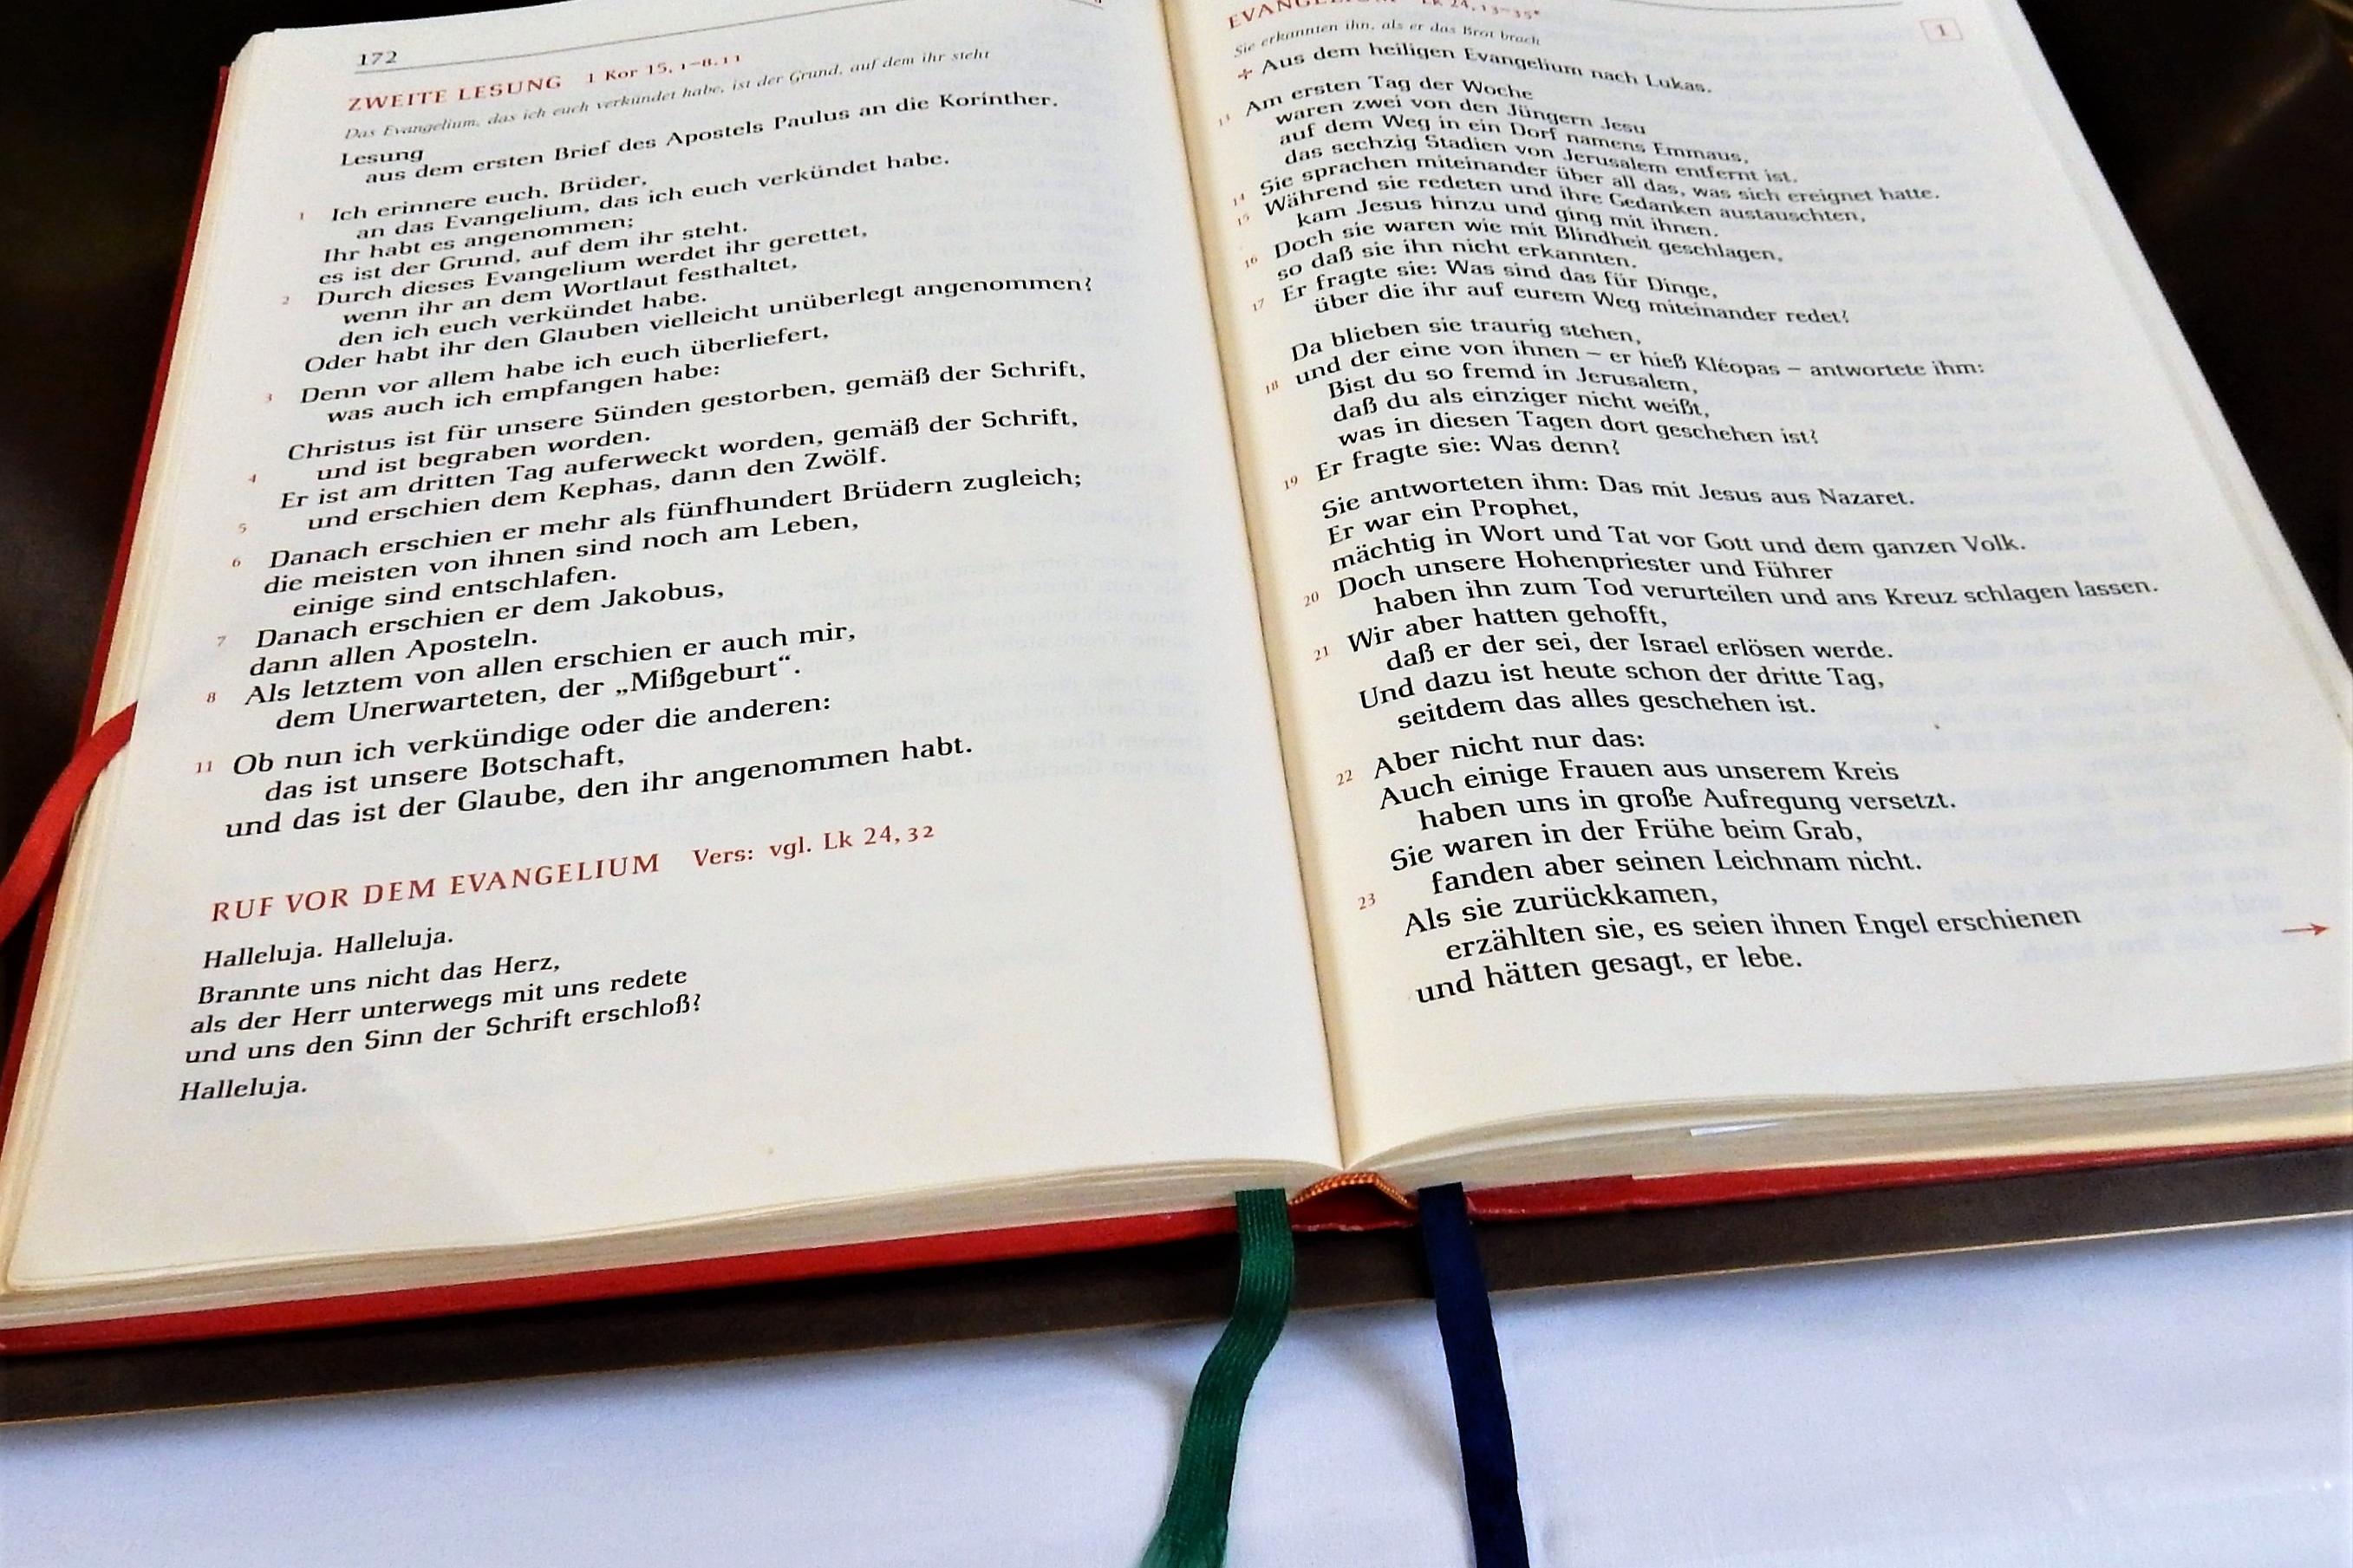 172
ZWEITE LESUNG 1 Kor 15, 1–8.11
Das Evangelium, das ich euch verkündet habe, ist der Grund, auf dem ihr steht
Lesung
aus dem ersten Brief des Apostels Paulus an die Korinther.
1 Ich erinnere euch, Brüder,
an das Evangelium, das ich euch verkündet habe.
Ihr habt es angenommen;
es ist der Grund, auf dem ihr steht.
2 Durch dieses Evangelium werdet ihr gerettet,
wenn ihr an dem Wortlaut festhaltet,
den ich euch verkündet habe.
Oder habt ihr den Glauben vielleicht unüberlegt angenommen?
3 Denn vor allem habe ich euch überliefert,
was auch ich empfangen habe:
Christus ist für unsere Sünden gestorben, gemäß der Schrift,
4 und ist begraben worden.
Er ist am dritten Tag auferweckt worden, gemäß der Schrift,
5 und erschien dem Kephas, dann den Zwölf.
6 Danach erschien er mehr als fünfhundert Brüdern zugleich;
die meisten von ihnen sind noch am Leben,
einige sind entschlafen.
7 Danach erschien er dem Jakobus,
dann allen Aposteln.
8 Als letztem von allen erschien er auch mir,
dem Unerwarteten, der „Mißgeburt“.
11 Ob nun ich verkündige oder die anderen:
das ist unsere Botschaft,
und das ist der Glaube, den ihr angenommen habt.
RUF VOR DEM EVANGELIUM Vers: vgl. Lk 24, 32
Halleluja. Halleluja.
Brannte uns nicht das Herz,
als der Herr unterwegs mit uns redete
und uns den Sinn der Schrift erschloß?
Halleluja.
EVANGELIUM Lk 24, 13–35*
1
Sie erkannten ihn, als er das Brot brach
+ Aus dem heiligen Evangelium nach Lukas.
13 Am ersten Tag der Woche
waren zwei von den Jüngern Jesu
auf dem Weg in ein Dorf namens Emmaus,
das sechzig Stadien von Jerusalem entfernt ist.
14 Sie sprachen miteinander über all das, was sich ereignet hatte.
15 Während sie redeten und ihre Gedanken austauschten,
kam Jesus hinzu und ging mit ihnen.
16 Doch sie waren wie mit Blindheit geschlagen,
so daß sie ihn nicht erkannten.
17 Er fragte sie: Was sind das für Dinge,
über die ihr auf eurem Weg miteinander redet?
Da blieben sie traurig stehen,
18 und der eine von ihnen – er hieß Kléopas – antwortete ihm:
Bist du so fremd in Jerusalem,
daß du als einziger nicht weißt,
was in diesen Tagen dort geschehen ist?
19 Er fragte sie: Was denn?
Sie antworteten ihm: Das mit Jesus aus Nazaret.
Er war ein Prophet,
mächtig in Wort und Tat vor Gott und dem ganzen Volk.
20 Doch unsere Hohenpriester und Führer
haben ihn zum Tod verurteilen und ans Kreuz schlagen lassen.
21 Wir aber hatten gehofft,
daß er der sei, der Israel erlösen werde.
Und dazu ist heute schon der dritte Tag,
seitdem das alles geschehen ist.
22 Aber nicht nur das:
Auch einige Frauen aus unserem Kreis
haben uns in große Aufregung versetzt.
Sie waren in der Frühe beim Grab,
23 fanden aber seinen Leichnam nicht.
Als sie zurückkamen,
erzählten sie, es seien ihnen Engel erschienen
und hätten gesagt, er lebe.